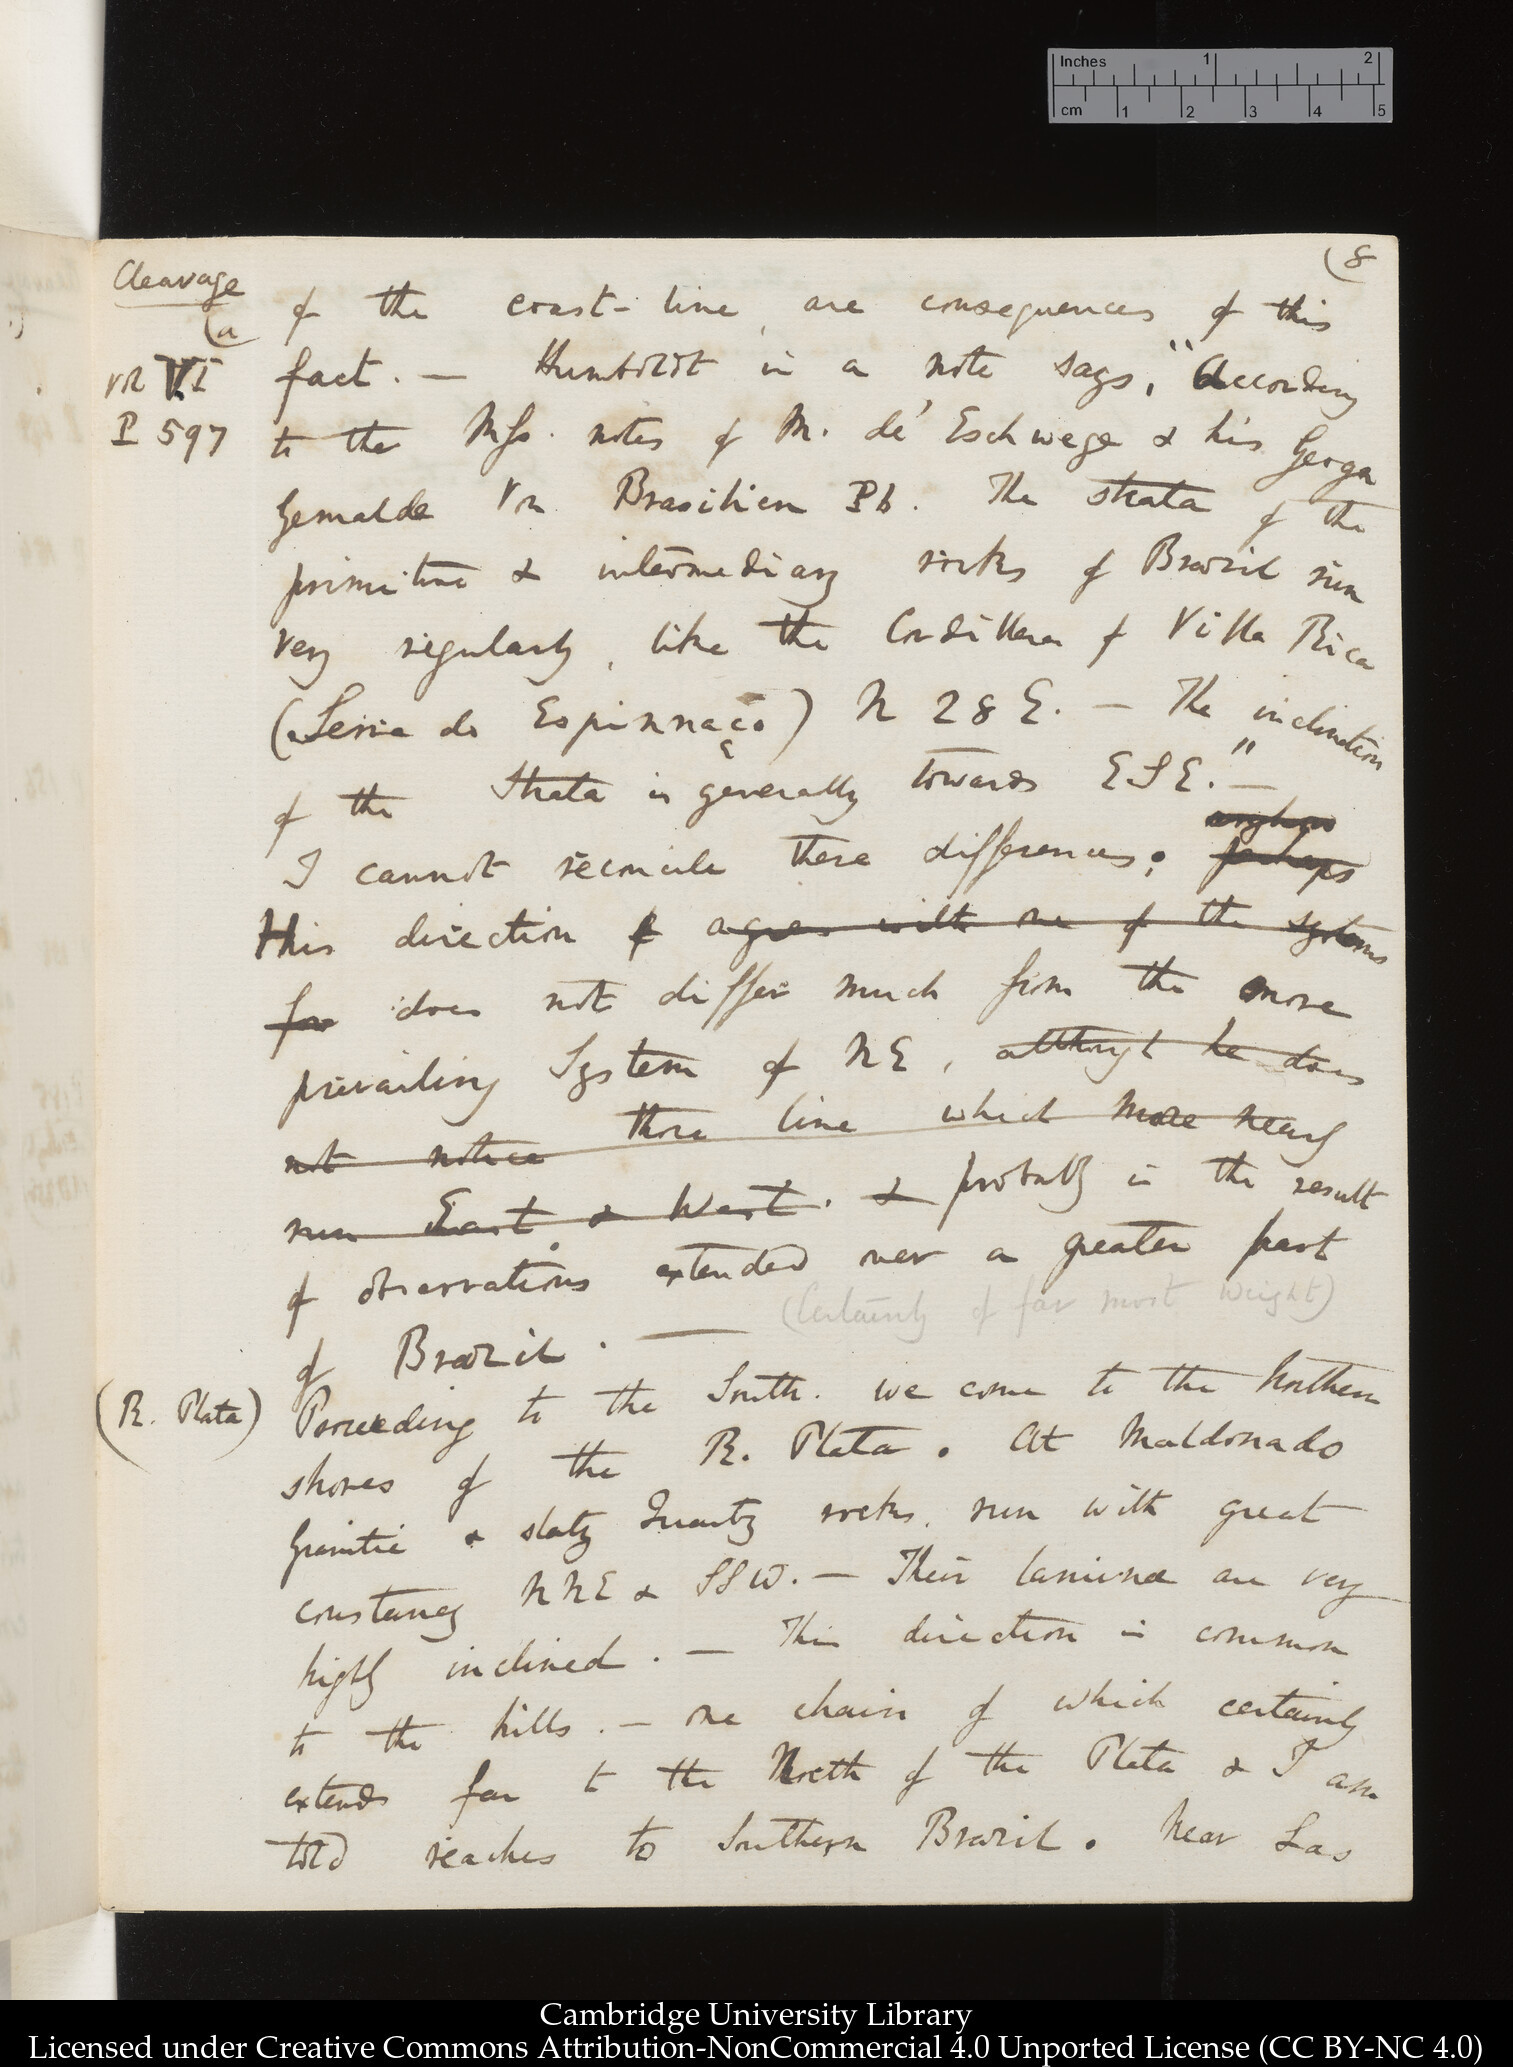 (8
Cleavage
(a
Vol VI
P 597
of the coast-line, are consequences of this
fact. — Humboldt in a note says, "According
to the MSS. notes of M. de' Eschwege & his Geogn
Gemalde Von Brasilien P 6. The strata of the
primitive & intermediary rocks of Brazil run
very regularly, like the Cordillera of Villa Rica
(Serra do Espinnaço) N 28 E. — The inclination
of the Strata is generally towards ESE." —
I cannot reconcile these differences; perhaps
this direction agrees with one of the systems
for does not differ much from the more
prevailing System of NE, although he does
not notice those line which more nearly
run East & West. & probably is the result
of observations extended over a greater part
(Certainly of far most weight)
of Brazil. —
(R. Plata)
Proceeding to the South. we come to the Northern
shores of the R. Plata. At Maldonado
Granitic & slaty Quartz rocks, run with great
constancy NNE & SSW. — Their laminæ are very
highly inclined. — This direction is common
to the hills. — one chain of which certainly
extends far to the North of the Plata & I am
told reaches to Southern Brazil. Near Las
Inches 1 2
cm 1 2 3 4 5
Cambridge University Library
Licensed under Creative Commons Attribution-NonCommercial 4.0 Unported License (CC BY-NC 4.0)